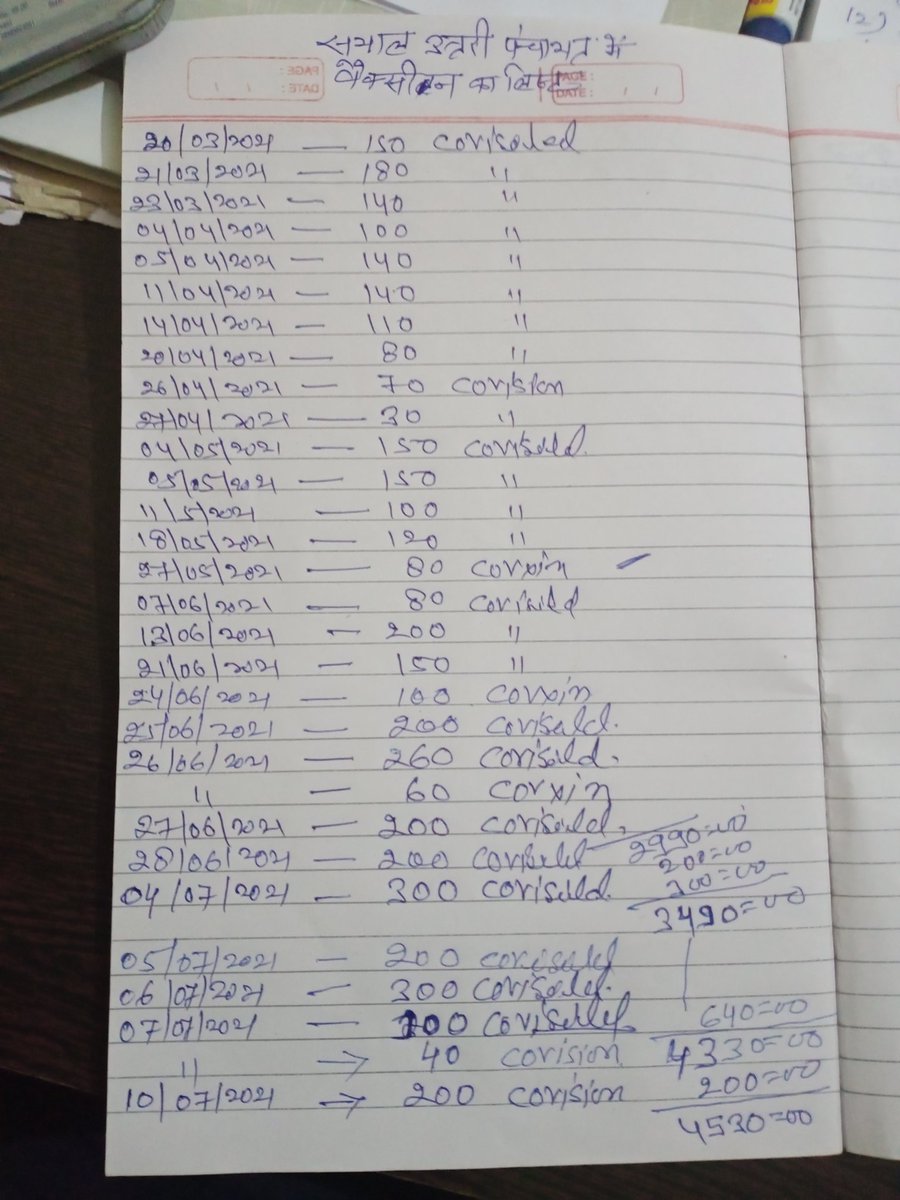 12)
सयाल डन्नी पंचायत में
PAGE :
DATE :
वैक्सीन का लिस्ट
PAGE :
DATE :
20/03/2021 — 150 covisaled
21/03/2021 — 180 "
23/03/2021 — 140 "
04/04/2021 — 100 "
05/04/2021 — 140 "
11/04/2021 — 140 "
14/04/2021 — 110 "
20/04/2021 — 80 "
26/04/2021 — 70 covision
27/04/2021 — 30 "
04/05/2021 — 150 covisald.
05/05/2021 — 150 "
11/5/2021 — 100 "
18/05/2021 — 120 "
27/05/2021 — 80 covxin
07/06/2021 — 80 covisild
13/06/2021 — 200 "
21/06/2021 — 150 "
24/06/2021 — 100 covxin
25/06/2021 — 200 covisald.
26/06/2021 — 260 covisald.
" — 60 covxin
27/06/2021 — 200 covisald.
2990=00
28/06/2021 — 200 covisald
200=00
300=00
04/07/2021 — 300 covisald.
3490=00
05/07/2021 — 200 covisald
06/07/2021 — 300 covisald.
07/07/2021 — 100 covisald
640=00
" → 40 covision
4330=00
10/07/2021 → 200 covision
200=00
4530=00